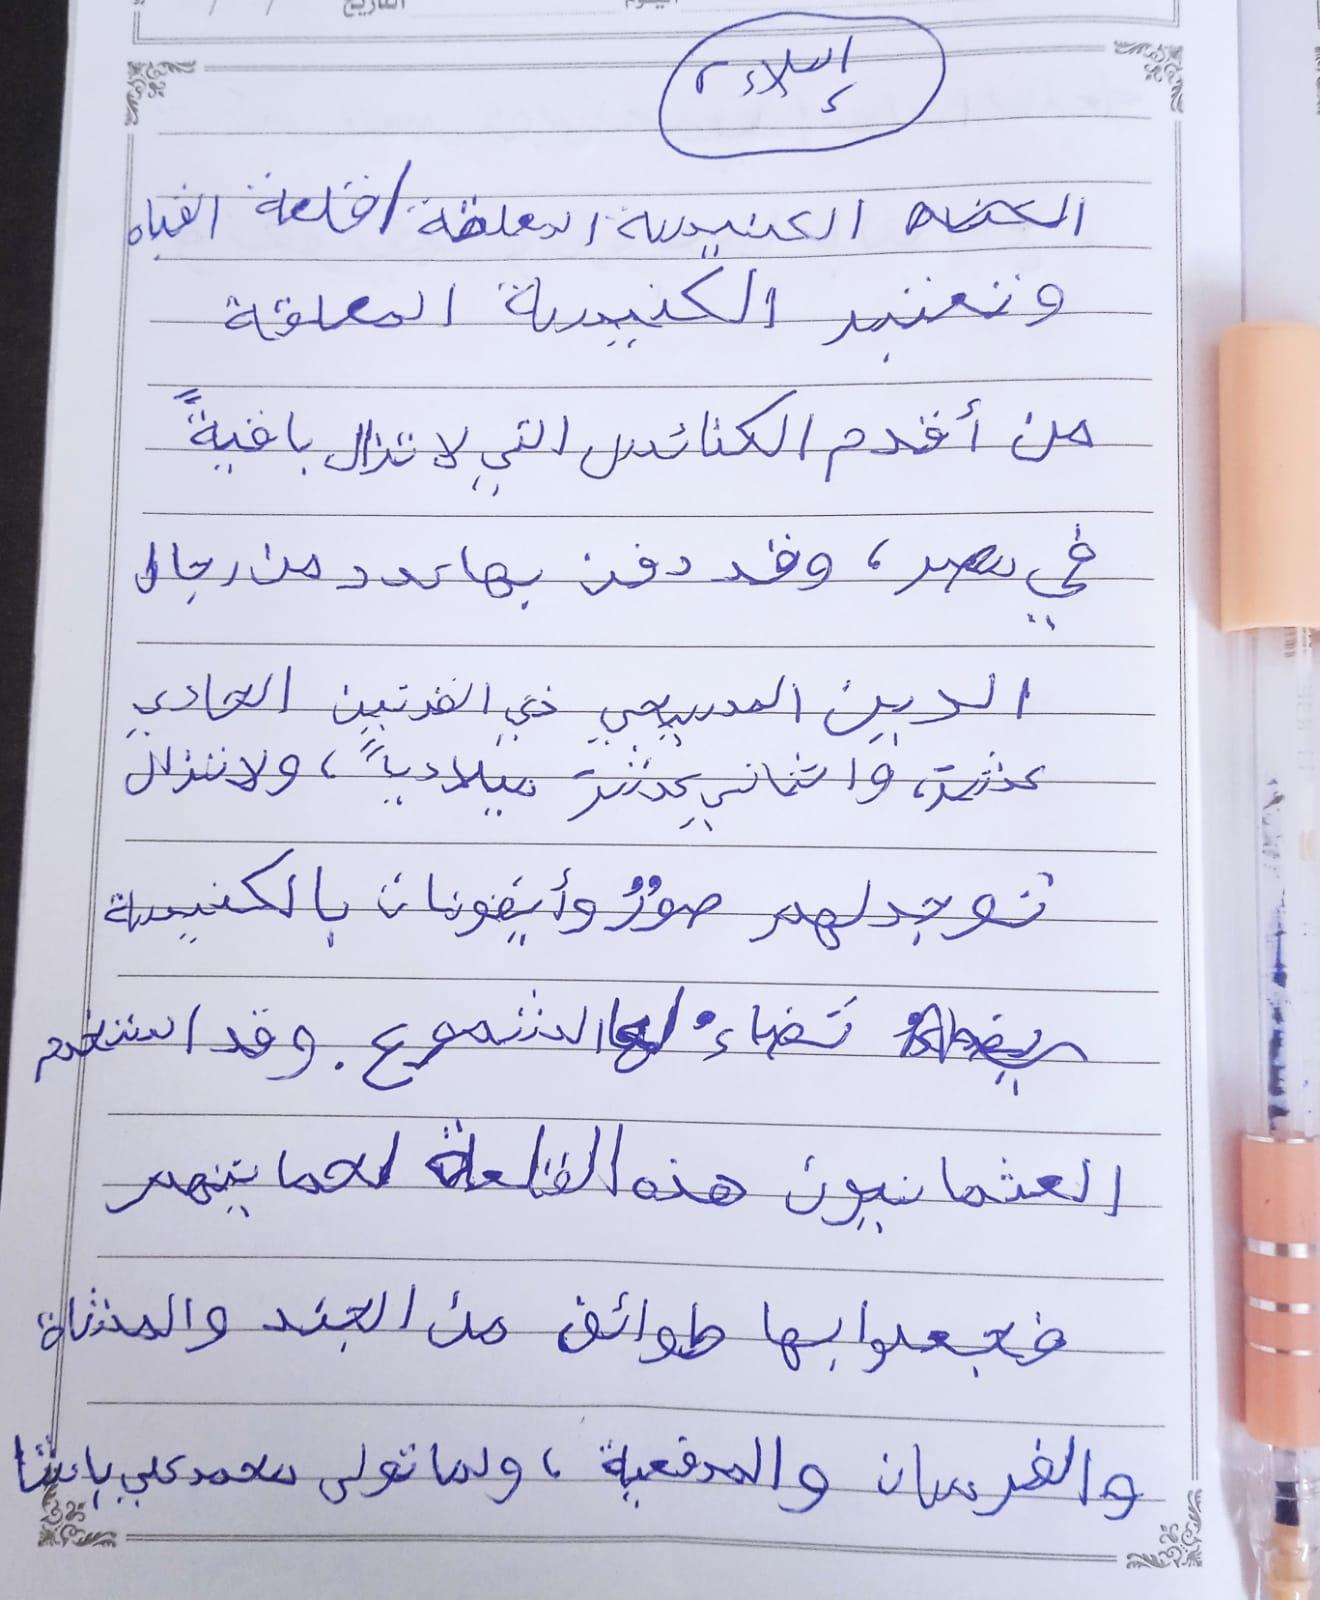 اليوم
التاريخ / /
إملاء
الكنيسة المعلقة / قلعة القناه
وتعتبر الكنيسة المعلقة
من أقدم الكنائس التي لا تزال باقيةً
في مصر، وقد دفن بها عدد من رجال
الدين المسيحي في القرنين الحادي
عشرة، واثاني عشرة ميلادياً، ولا تزال
توجد لهم صورٌ وأيقونات بالكنيسة
تضاء لها الشموع. وقد استخدم
العثمانيون هذه القلعة لحمايتهم
فجعلوا بها طوائف من الجند والمشاة
والفرسان والمدفعية، ولما تولى محمد علي باشا